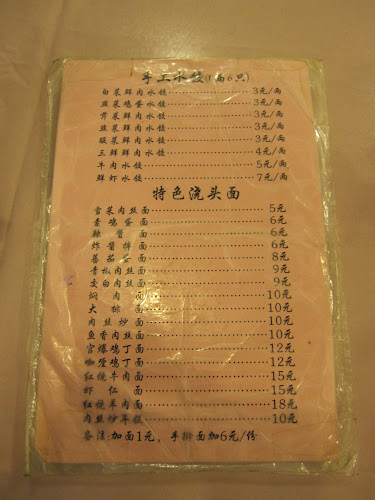 手工水饺(1两6只)
白菜鲜肉水饺 3元/两
韭菜鸡蛋水饺 3元/两
荠菜鲜肉水饺 3元/两
韭菜鲜肉水饺 3元/两
酸菜鲜肉水饺 3元/两
三鲜鲜肉水饺 4元/两
牛肉水饺 5元/两
鲜虾水饺 7元/两
特色浇头面
雪菜肉丝面 5元
青鸡蛋面 6元
辣酱面 6元
炸酱拌面 6元
蕃茄蛋面 8元
青椒肉丝面 9元
茭白肉丝面 9元
焖肉面 10元
大排面 10元
肉丝炒面 10元
鱼香肉丝面 10元
宫爆鸡丁面 12元
咖喱鸡丁面 12元
红烧牛肉面 15元
虾仁面 15元
红烧羊肉面 18元
肉丝炒年糕 10元
备注:加面1元,手擀面加6元/份